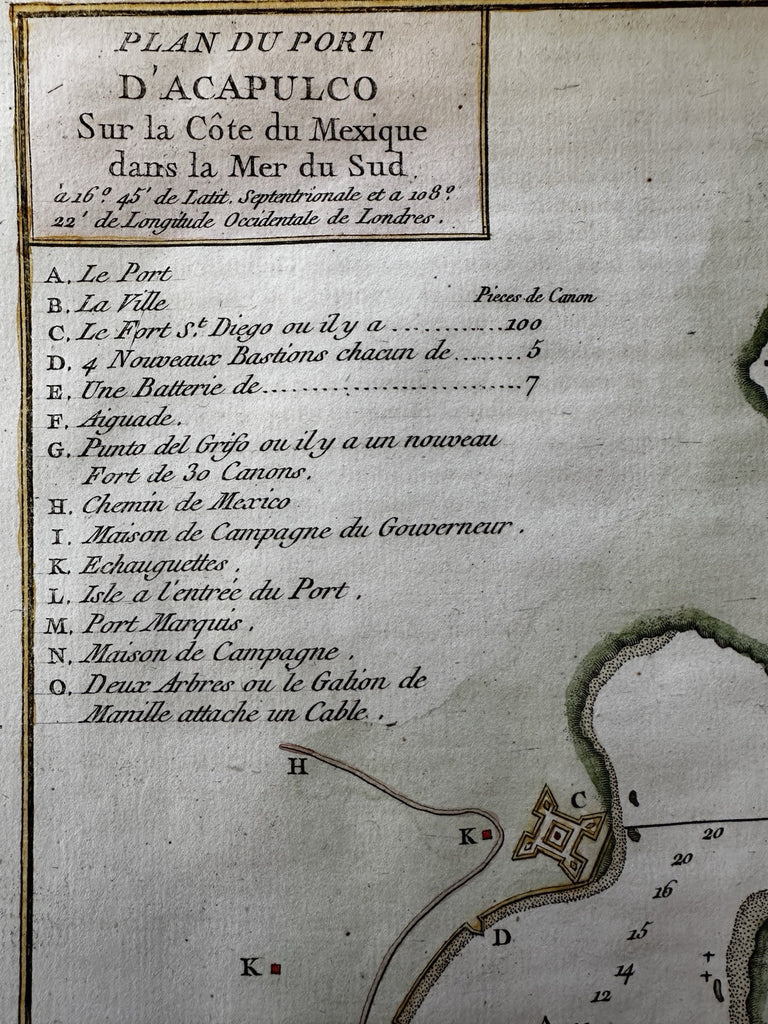 PLAN DU PORT
D'ACAPULCO
Sur la Côte du Mexique
dans la Mer du Sud.
à 16º. 45' de Latit. Septentrionale et a 108º.
22' de Longitude Occidentale de Londres.
A. Le Port
B. La Ville
Pieces de Canon
C. Le Fort St. Diego ou il y a ........... 100
D. 4 Nouveaux Bastions chacun de ....... 5
E. Une Batterie de .......................... 7
F. Aiguade.
G. Punto del Grifo ou il y a un nouveau
Fort de 30 Canons.
H. Chemin de Mexico
I. Maison de Campagne du Gouverneur.
K. Echauguettes.
L. Isle a l'entrée du Port.
M. Port Marquis.
N. Maison de Campagne.
O. Deux Arbres ou le Galion de
Manille attache un Cable.
H
C
K
20
20
16
D
15
K
14
12